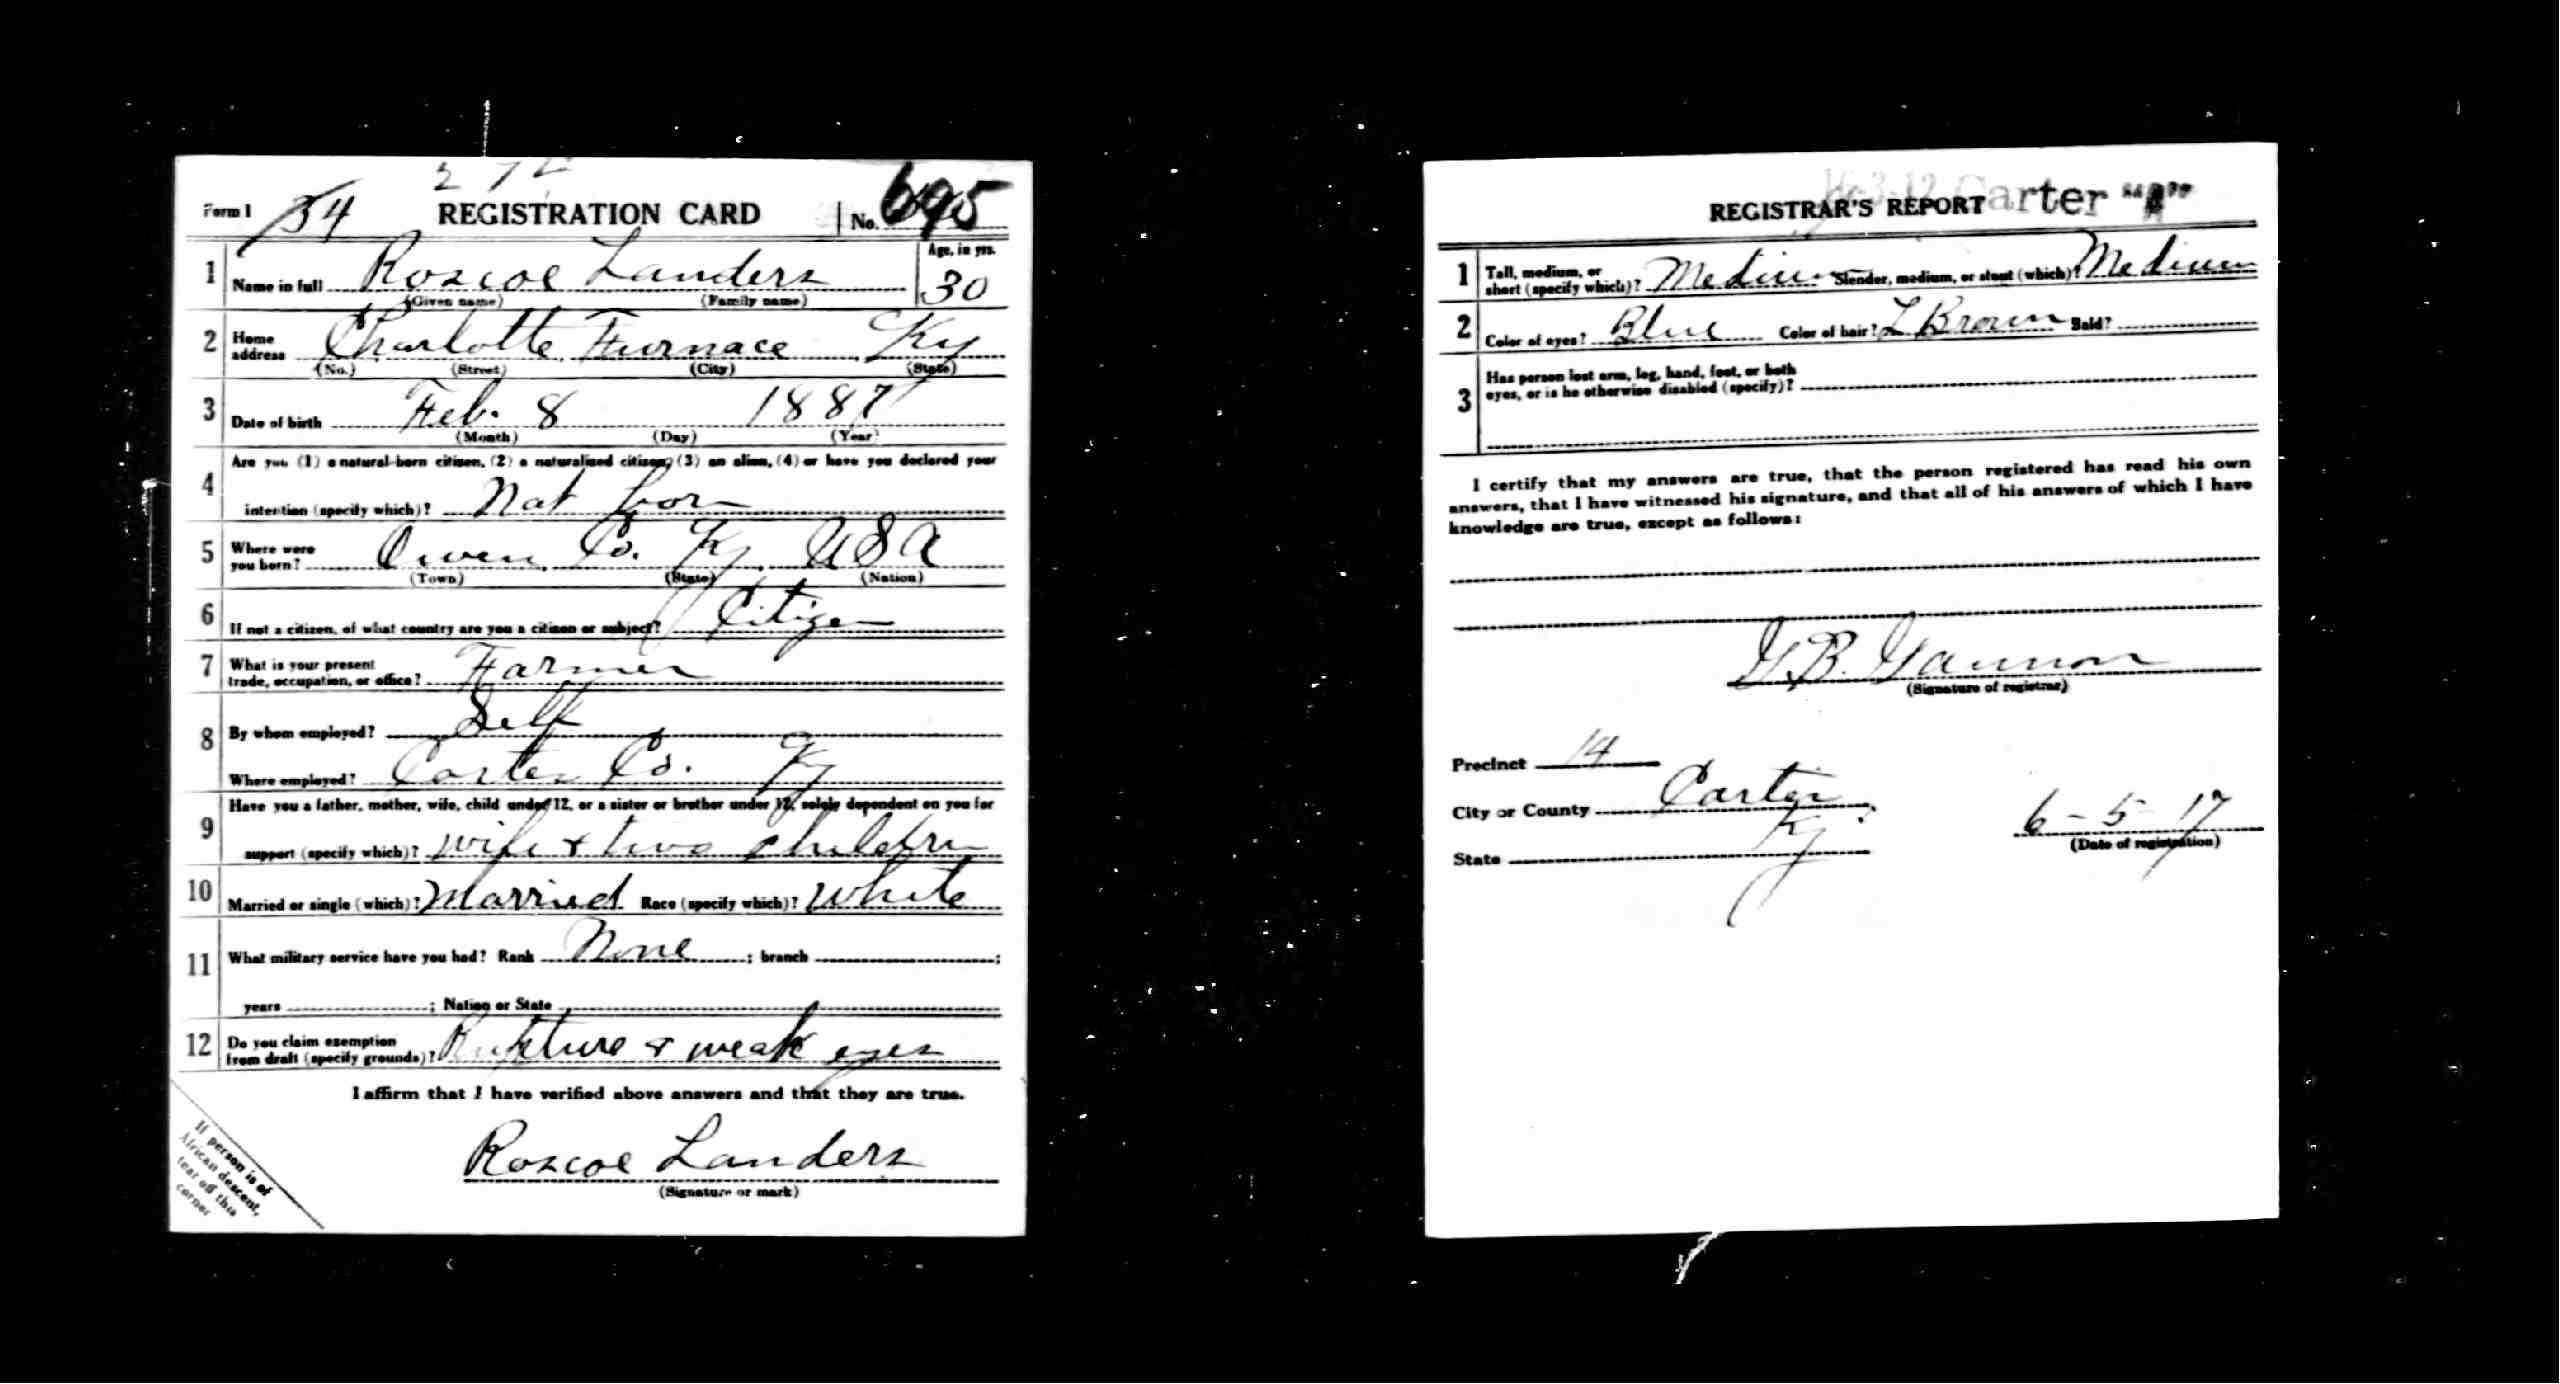 Form 1 54 REGISTRATION CARD No. 695
1 Name in full Roscoe Landers Age, in yrs. 30
(Given name) (Family name)
2 Home address Charlotte Furnace Ky
(No.) (Street) (City) (State)
3 Date of birth Feb. 8 1887
(Month) (Day) (Year)
4 Are you (1) a natural-born citizen, (2) a naturalized citizen, (3) an alien, (4) or have you declared your
intention (specify which)? Nat born
5 Where were you born? Owen Co. Ky USA
(Town) (State) (Nation)
6 If not a citizen, of what country are you a citizen or subject? Citizen
7 What is your present trade, occupation, or office? Farmer
8 By whom employed? Self
Where employed? Carter Co. Ky
9 Have you a father, mother, wife, child under 12, or a sister or brother under 12, solely dependent on you for
support (specify which)? wife + two children
10 Married or single (which)? Married Race (specify which)? White
11 What military service have you had? Rank None ; branch ;
years ; Nation or State
12 Do you claim exemption from draft (specify grounds)? Rupture & weak eyes
I affirm that I have verified above answers and that they are true.
Roscoe Landers
(Signature or mark)
If person is of
African descent,
tear off this
corner
REGISTRAR'S REPORT 16-3-12 Carter "A"
1 Tall, medium, or short (specify which)? Medium Slender, medium, or stout (which)? Medium
2 Color of eyes? Blue Color of hair? L Brown Bald?
3 Has person lost arm, leg, hand, foot, or both
eyes, or is he otherwise disabled (specify)?
I certify that my answers are true, that the person registered has read his own
answers, that I have witnessed his signature, and that all of his answers of which I have
knowledge are true, except as follows:
G.B. Gannon
(Signature of registrar)
Precinct 14
City or County Carter
State Ky
6-5-17
(Date of registration)